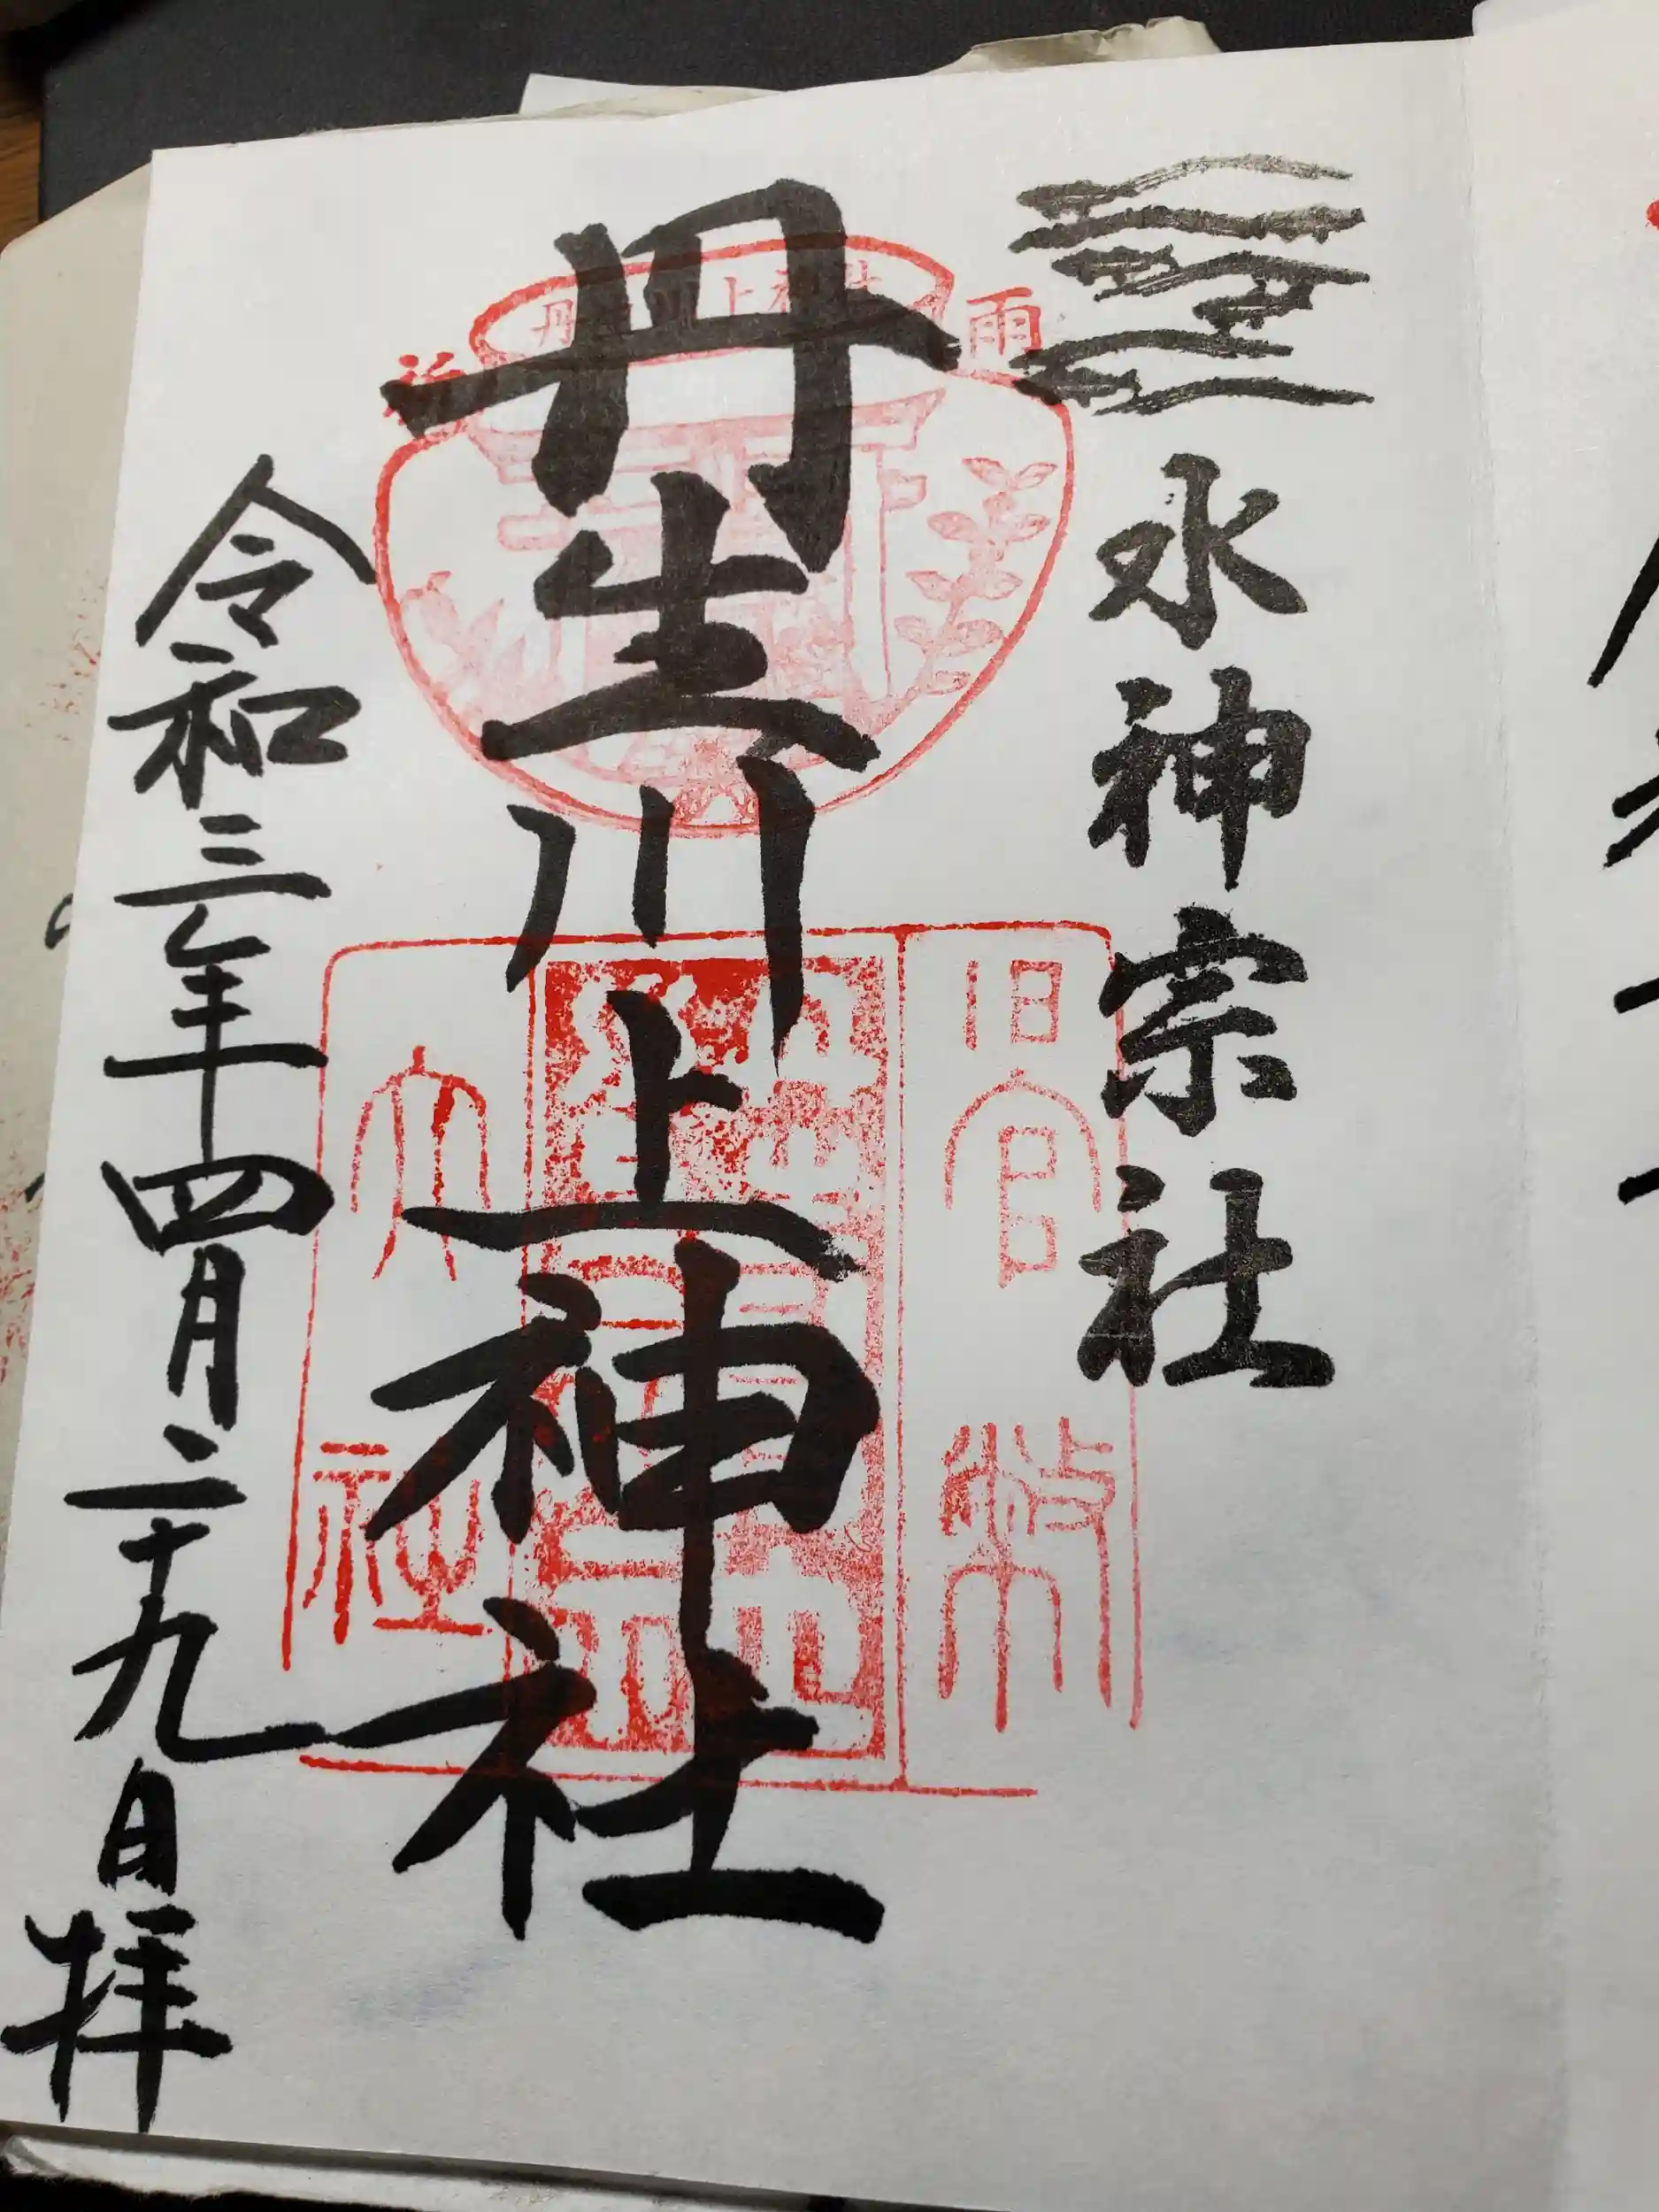 水神宗社
雨
祈
丹生川上神社
旧官幣
大社
丹生川上神社
令和三年四月二十九日拝